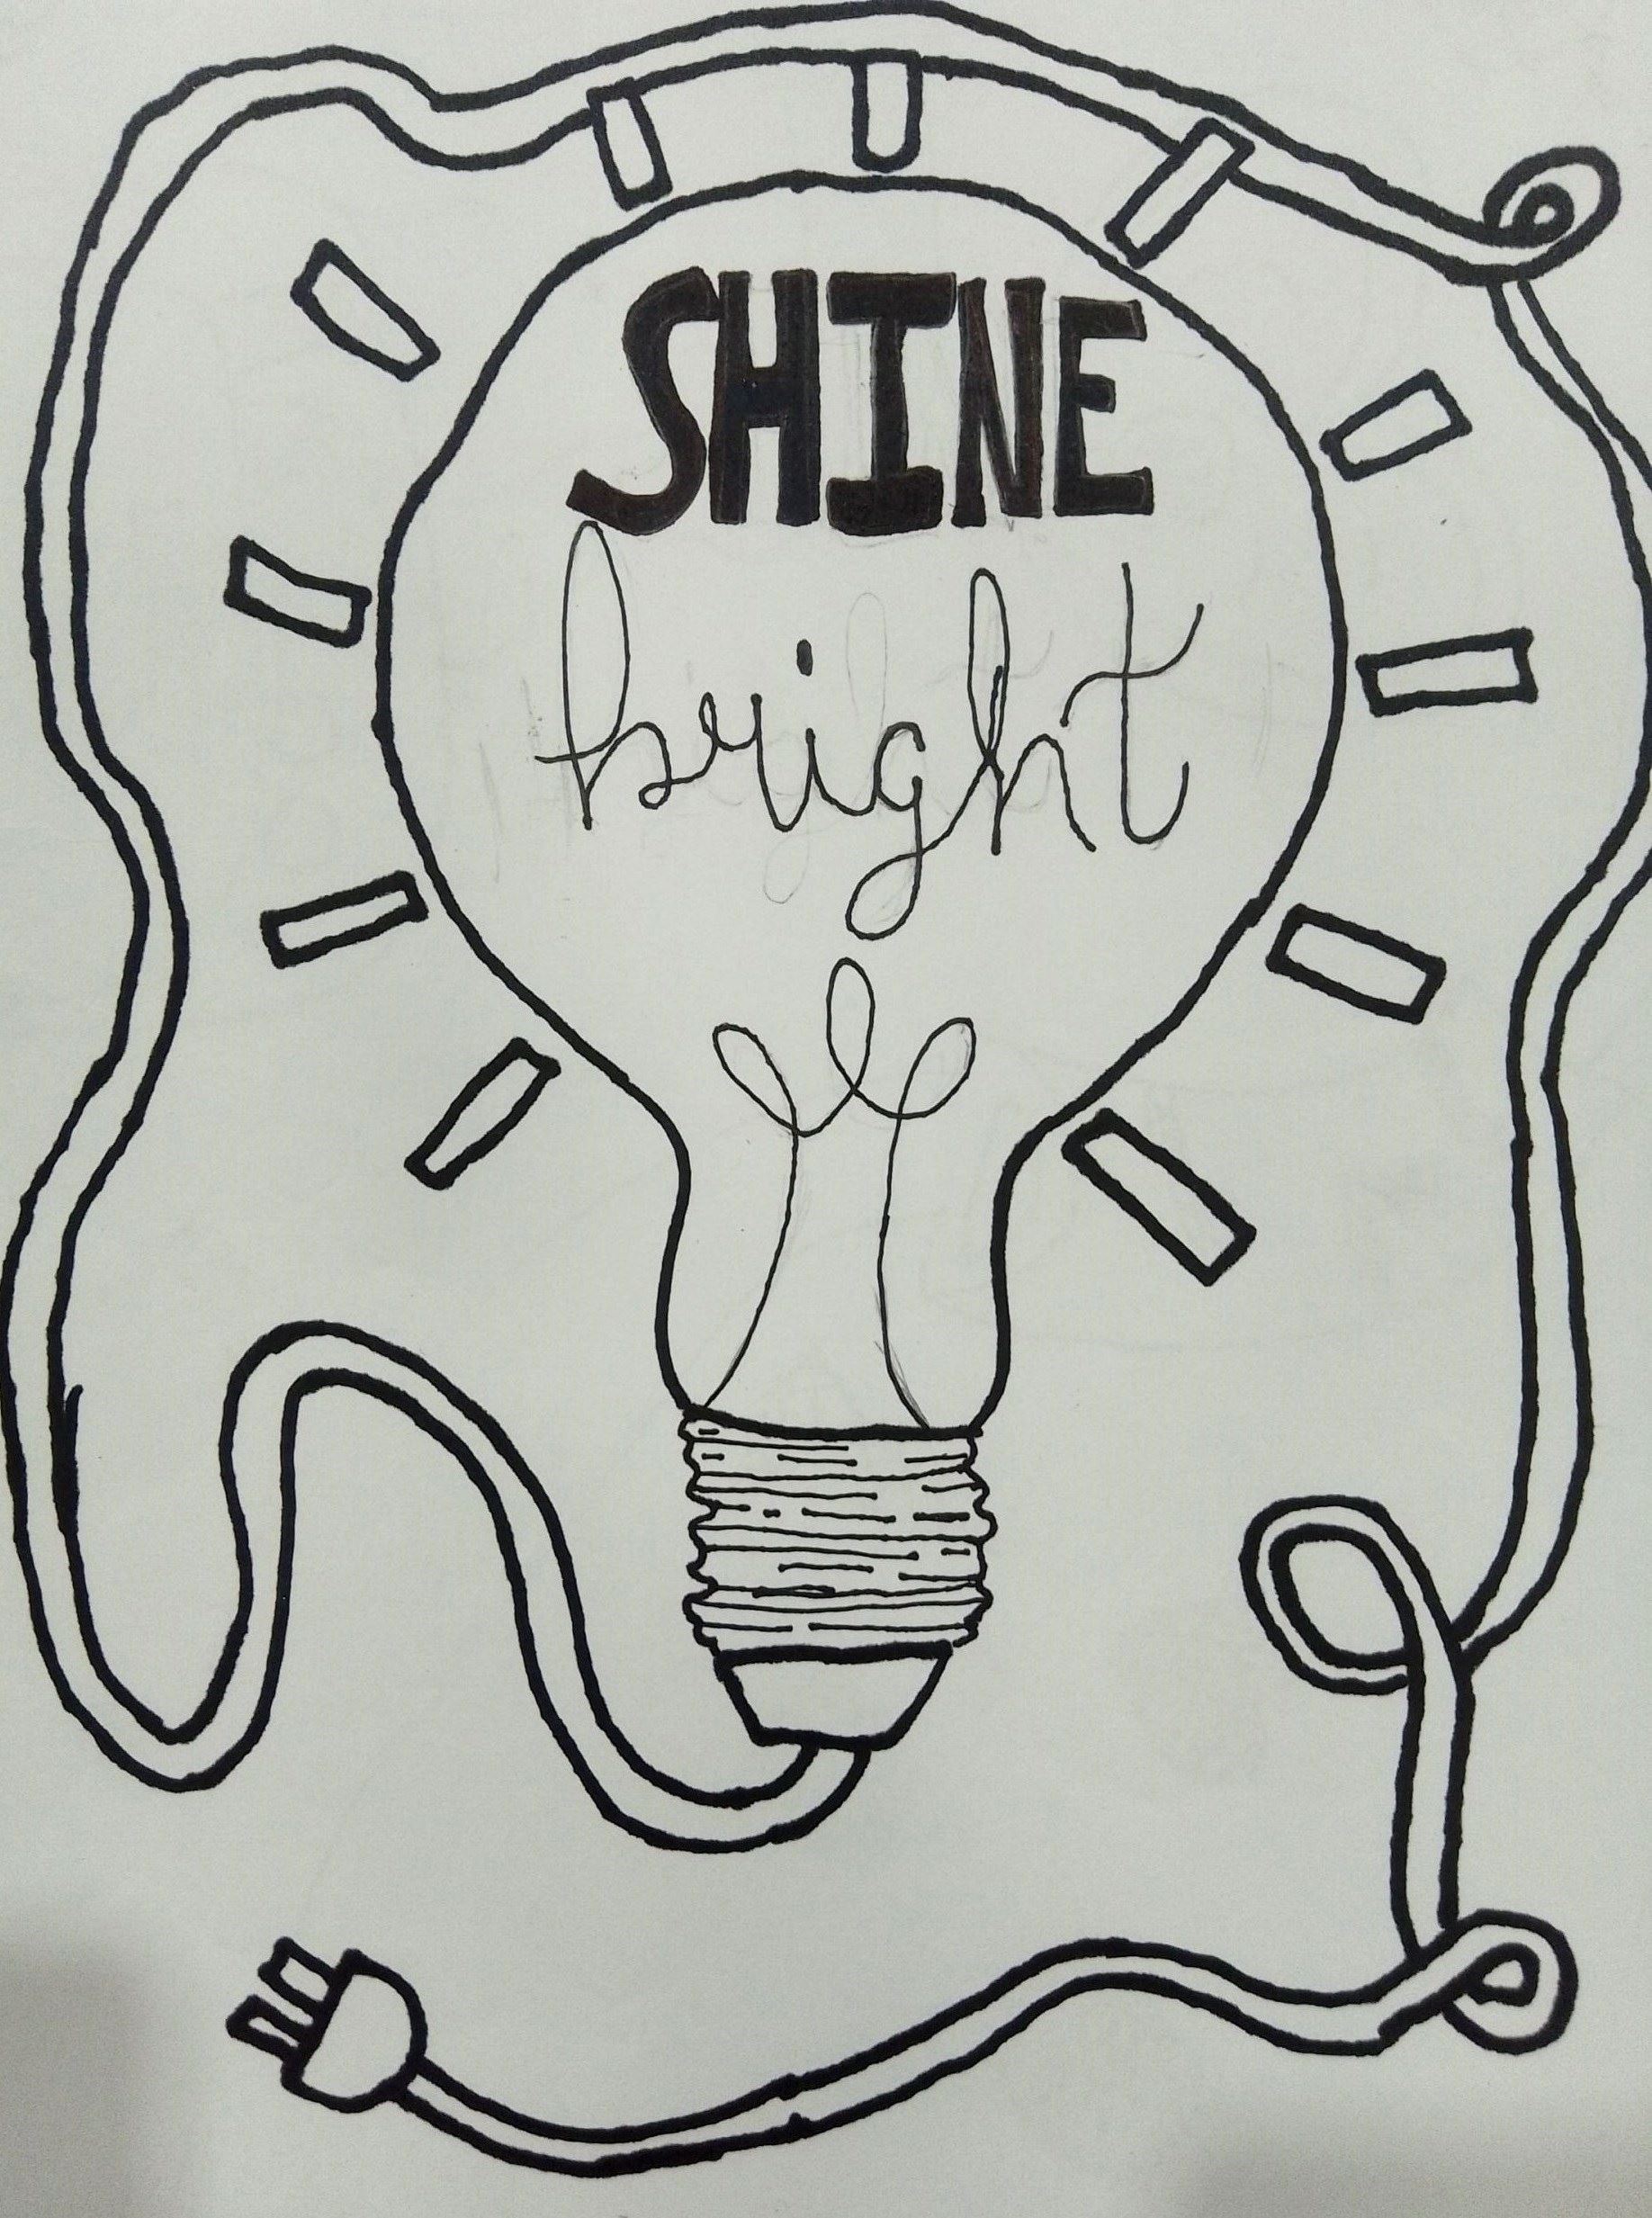 SHINE
bright